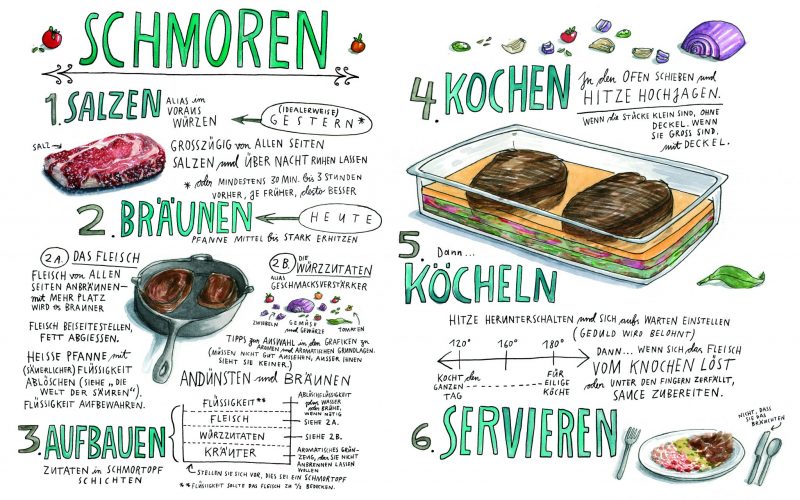 SCHMOREN
1. SALZEN
ALIAS im
VORAUS
WÜRZEN
(IDEALERWEISE)
GESTERN*
SALZ
GROSSZÜGIG von ALLEN SEITEN
SALZEN und ÜBER NACHT RUHEN LASSEN
* oder MINDESTENS 30 MIN. bis 3 STUNDEN
VORHER, JE FRÜHER, desto BESSER
2. BRÄUNEN
HEUTE
PFANNE MITTEL bis STARK ERHITZEN
2A. DAS FLEISCH
FLEISCH von ALLEN
SEITEN ANBRÄUNEN—
mit MEHR PLATZ
WIRD es BRAUNER
FLEISCH BEISEITESTELLEN,
FETT ABGIESSEN.
HEISSE PFANNE mit
(SÄUERLICHER) FLÜSSIGKEIT
ABLÖSCHEN (SIEHE „DIE
WELT DER SÄUREN").
FLÜSSIGKEIT AUFBEWAHREN.
2B. DIE
WÜRZZUTATEN
ALIAS
GESCHMACKSVERSTÄRKER
ZWIEBELN
GEMÜSE
und GEWÜRZE
TOMATEN
TIPPS zur AUSWAHL in den GRAFIKEN zu
AROMEN und AROMATISCHEN GRUNDLAGEN.
(MÜSSEN NICHT GUT AUSSEHEN, AUSSER IHNEN
SIEHT SIE KEINER.)
ANDÜNSTEN und BRÄUNEN
3. AUFBAUEN
ZUTATEN in SCHMORTOPF
SCHICHTEN
FLÜSSIGKEIT**
ABLÖSCHFLÜSSIGKEIT
plus WASSER
oder BRÜHE,
WENN NÖTIG
FLEISCH
SIEHE 2A.
WÜRZZUTATEN
SIEHE 2B.
KRÄUTER
AROMATISCHES GRÜN-
ZEUG, das SIE NICHT
ANBRENNEN LASSEN
WOLLEN
STELLEN SIE SICH VOR, DIES SEI EIN SCHMORTOPF
**FLÜSSIGKEIT SOLLTE DAS FLEISCH ZU ⅓ BEDECKEN.
4. KOCHEN
In den OFEN SCHIEBEN und
HITZE HOCHJAGEN.
WENN die STÜCKE KLEIN SIND, OHNE
DECKEL. WENN
SIE GROSS SIND,
mit DECKEL.
5. Dann...
KÖCHELN
HITZE HERUNTERSCHALTEN und SICH aufs WARTEN EINSTELLEN
(GEDULD WIRD BELOHNT)
120° 160° 180°
KOCHT den
GANZEN
TAG
FÜR
EILIGE
KÖCHE
DANN... WENN SICH das FLEISCH
VOM KNOCHEN LÖST
oder UNTER DEN FINGERN ZERFÄLLT,
SAUCE ZUBEREITEN.
6. SERVIEREN
NICHT, DASS
SIE DAS
BRÄUCHTEN